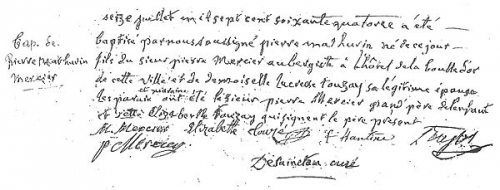 seize juillet mil sept cent soixante quatorze a été
Bap. de
baptisé par nous soussigné pierre mathurin né de ce jour
pierre mathurin
fils du sieur pierre Mercier aubergiste à l'hôtel de la boulle d'or
mercier
de cette ville et de demoiselle Lucresse touzay sa légitime épouse
et
les parain ont été le sieur pierre Mercier grand père de l'enfant
et Elizabeth touzay qui signent le père présent
M. Mercier Elizabette f
p Mercier
curé